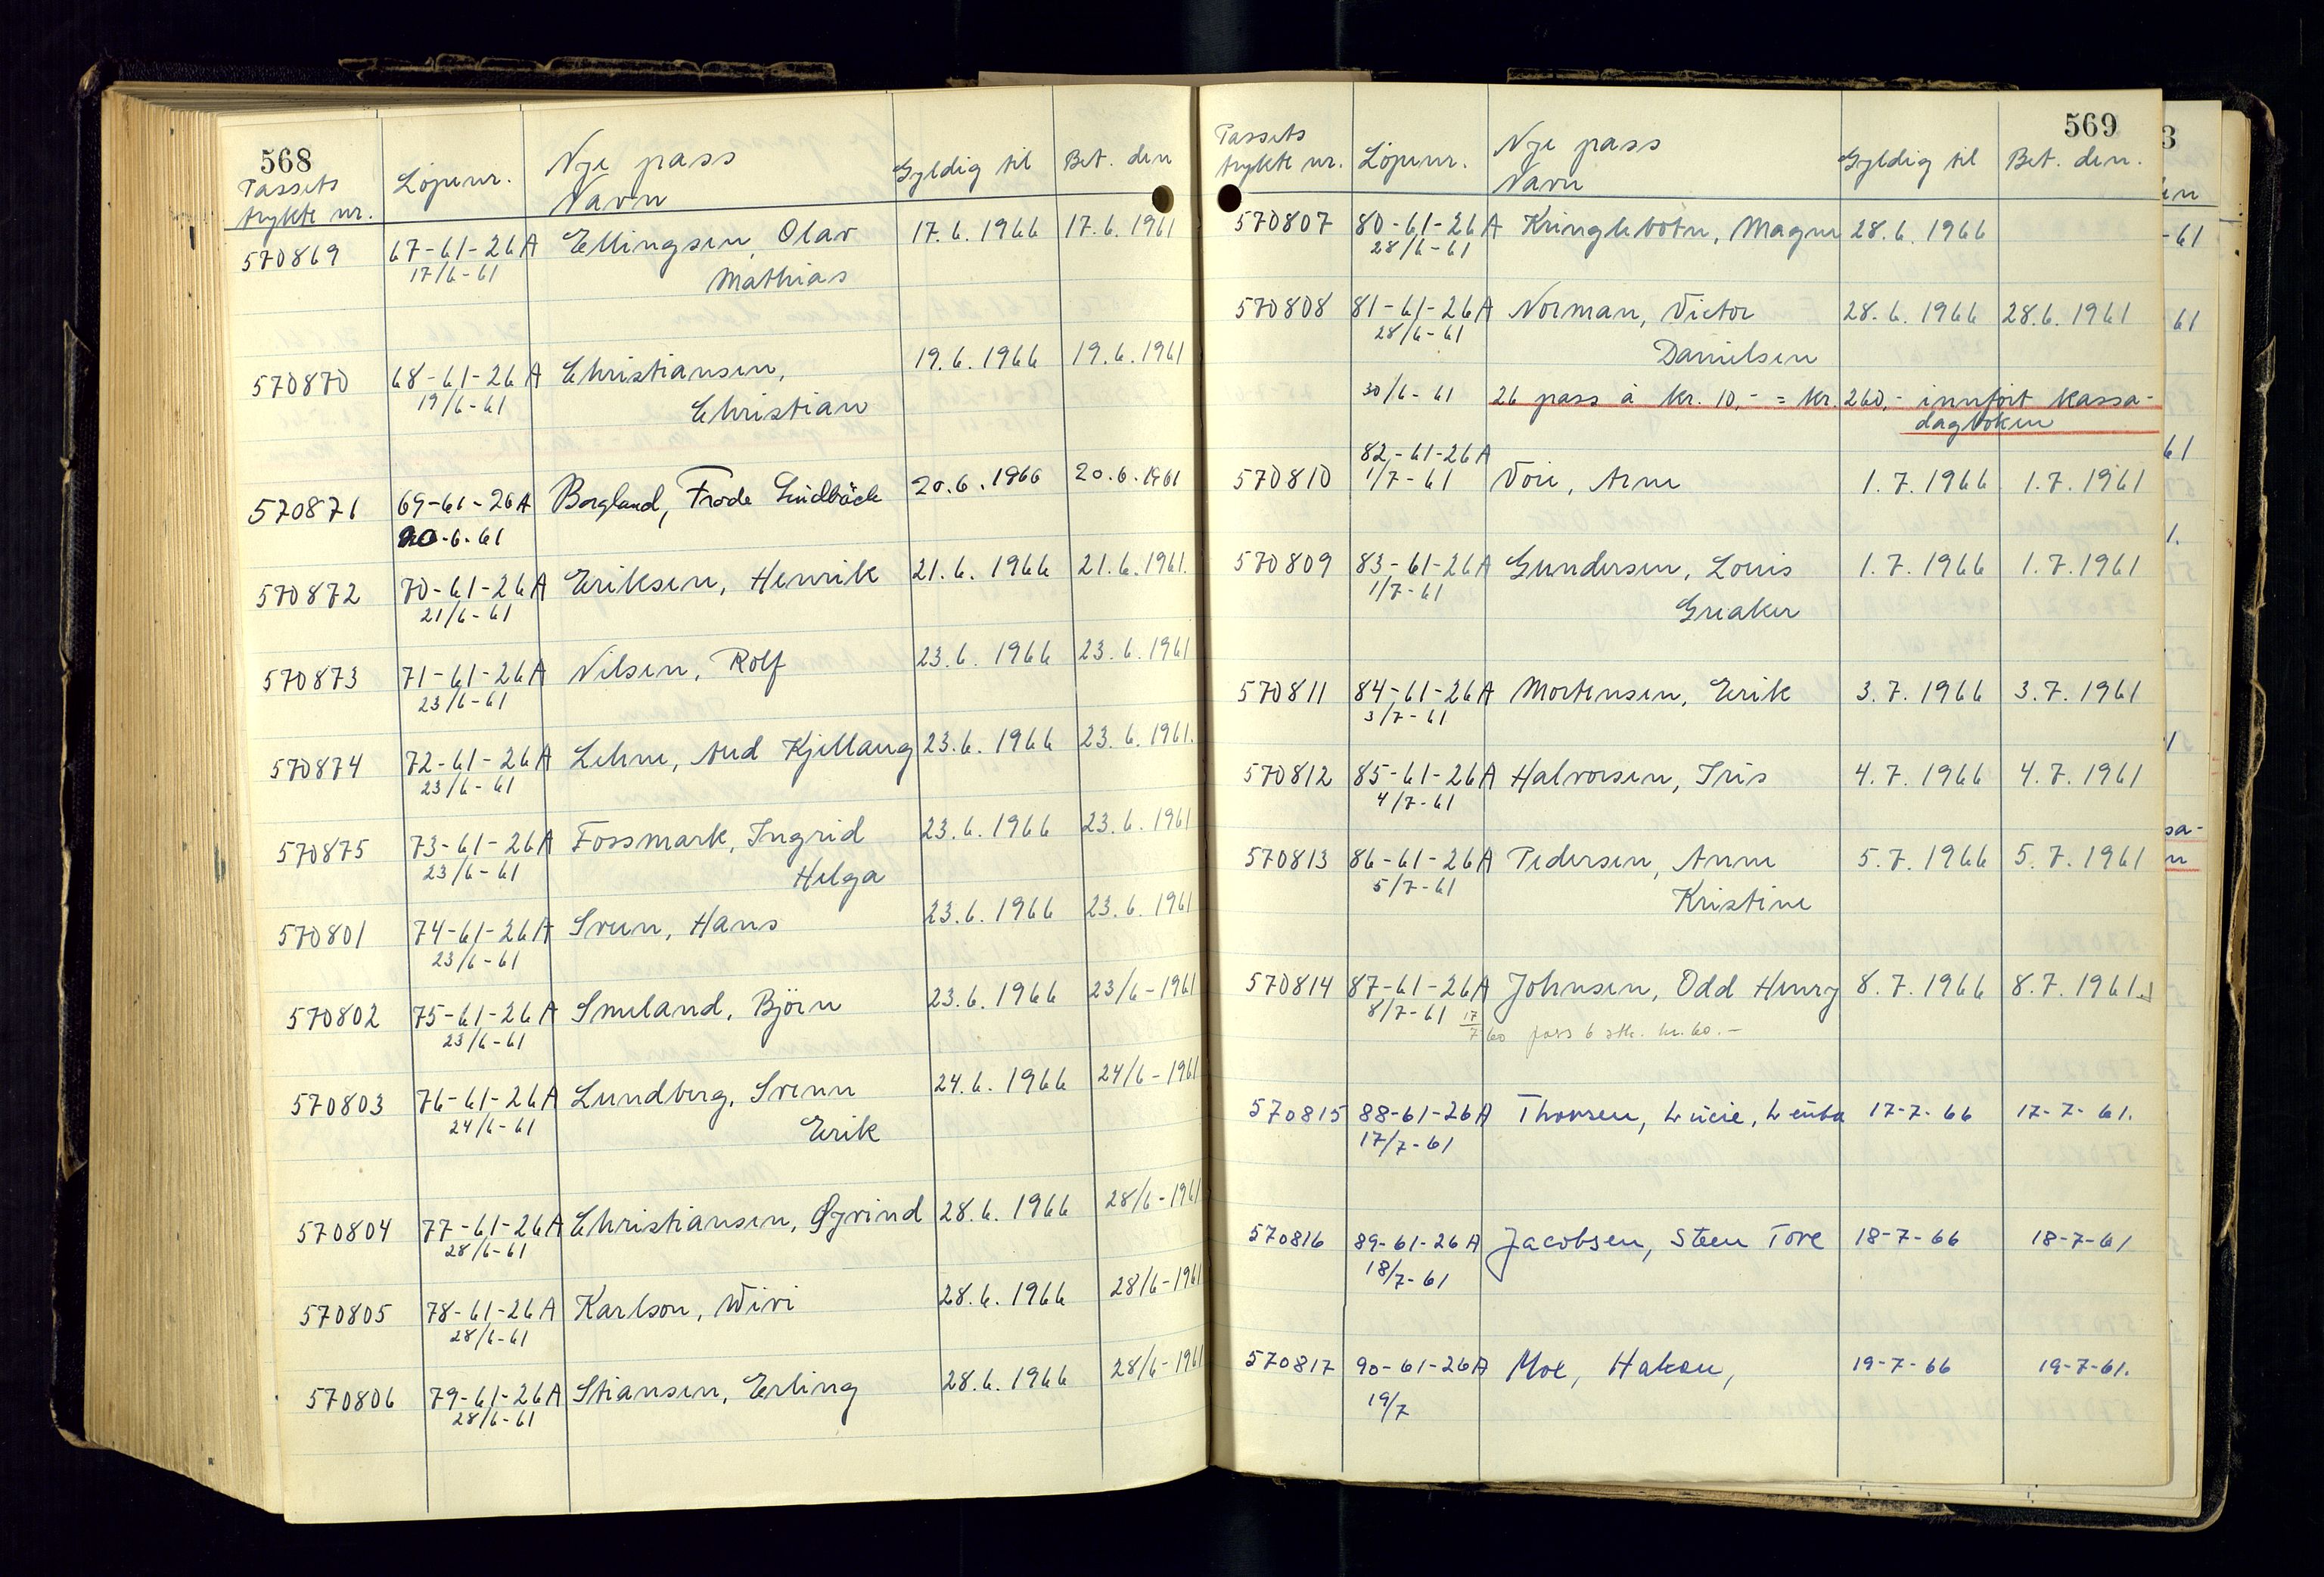 568
Nye pass
Passets
trykte nr. Löpenr. Navn Gyldig til Bet. den
570869 67-61-26A Ellingsen, Olav 17.6.1966 17.6.1961
17/6-61 Mathias
570870 68-61-26A Christiansen, 19.6.1966 19.6.1961
19/6-61 Christian
570871 69-61-26A Borgland, Frode Lindbäck 20.6.1966 20.6.1961
20.6.61
570872 70-61-26A Eriksen, Henrik 21.6.1966 21.6.1961.
21/6-61
570873 71-61-26A Nilsen, Rolf 23.6.1966 23.6.1961
23/6-61
570874 72-61-26A Lehne, Aud Kjellaug 23.6.1966 23.6.1961.
23/6-61
570875 73-61-26A Fossmark, Ingrid 23.6.1966 23.6.1961
23/6-61 Helga
570801 74-61-26A Sveen, Hans 23.6.1966 23.6.1961
23/6-61
570802 75-61-26A Smeland, Björn 23.6.1966 23/6-1961
23/6-61
570803 76-61-26A Lundberg, Svenn 24.6.1966 24/6-1961
24/6-61 Erik
570804 77-61-26A Christiansen, Øyvind 28.6.1966 28/6-1961
28/6-61
570805 78-61-26A Karlson, Wivi 28.6.1966 28/6-1961
28/6-61
570806 79-61-26A Stiansen, Erling 28.6.1966 28/6-1961
28/6-61
569
Passets Nye pass
trykte nr. Löpenr. Navn Gyldig til Bet. den.
570807 80-61-26A Kringlebotn, Magne 28.6.1966
28/6-61
570808 81-61-26A Norman, Victor 28.6.1966 28.6.1961
28/6-61 Danielsen
30/6-61 26 pass à kr. 10,- = kr. 260,- innfört kassa-
dagboken
82-61-26A
570810 1/7-61 Voie, Arne 1.7.1966 1.7.1961
570809 83-61-26A Gundersen, Louis 1.7.1966 1.7.1961
1/7-61 Greaker
570811 84-61-26A Mortensen, Erik 3.7.1966 3.7.1961
3/7-61
570812 85-61-26A Halvorsen, Iris 4.7.1966 4.7.1961
4/7-61
570813 86-61-26A Pedersen, Anne 5.7.1966 5.7.1961
5/7-61 Kristine
570814 87-61-26A Johnsen, Odd Henry 8.7.1966 8.7.1961.
8/7-61 17/7 60 pass 6 stk. kr. 60.-
570815 88-61-26A Thorsen, Lucie, 17-7-66 17-7-61.
17/7-61
570816 89-61-26A Jacobsen, Steen Tore 18-7-66 18-7-61
18/7-61
570817 90-61-26A Moe, Hakon, 19-7-66 19-7-61.
19/7